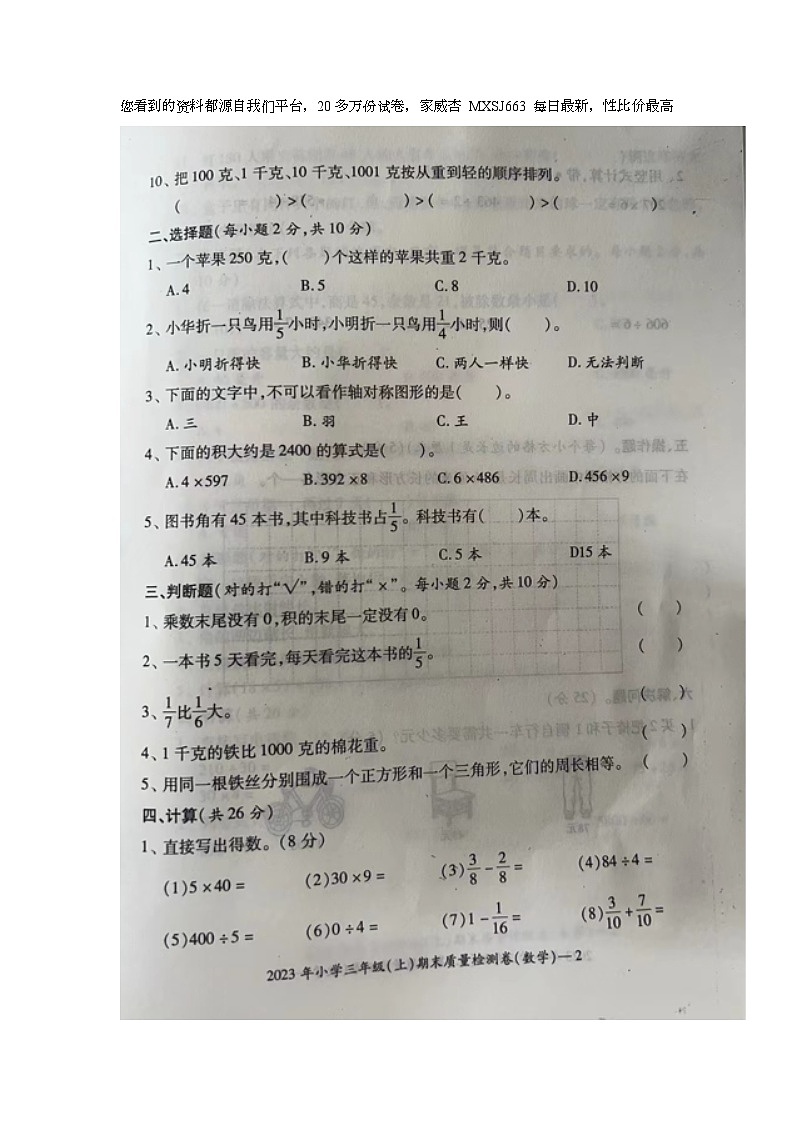 您看到的资料都源自我们平台，20 多万份试卷，家威杏 MXSJ663 每日最新，性比价最高
10、把100克、1千克、10千克、1001克按从重到轻的顺序排列。
(　　)>(　　)>(　　)>(　　)
二、选择题(每小题2分,共10分)
1、一个苹果250克,(　　)个这样的苹果共重2千克。
A.4　B.5　C.8　D.10
2、小华折一只鸟用1/5小时,小明折一只鸟用1/4小时,则(　　)。
A.小明折得快　B.小华折得快　C.两人一样快　D.无法判断
3、下面的文字中,不可以看作轴对称图形的是(　　)。
A.三　B.羽　C.王　D.中
4、下面的积大约是2400的算式是(　　)。
A.4×597　B.392×8　C.6×486　D.456×9
5、图书角有45本书,其中科技书占1/5。科技书有(　　)本。
A.45本　B.9本　C.5本　D15本
三、判断题(对的打“√”,错的打“×”。每小题2分,共10分)
1、乘数末尾没有0,积的末尾一定没有0。(　　)
2、一本书5天看完,每天看完这本书的1/5。(　　)
3、1/7比1/6大。(　　)
4、1千克的铁比1000克的棉花重。(　　)
5、用同一根铁丝分别围成一个正方形和一个三角形,它们的周长相等。(　　)
四、计算(共26分)
1、直接写出得数。(8分)
(1)5×40=　(2)30×9=　(3)3/8-2/8=　(4)84÷4=
(5)400÷5=　(6)0÷4=　(7)1-1/16=　(8)3/10+7/10=
2023年小学三年级(上)期末质量检测卷(数学)—2